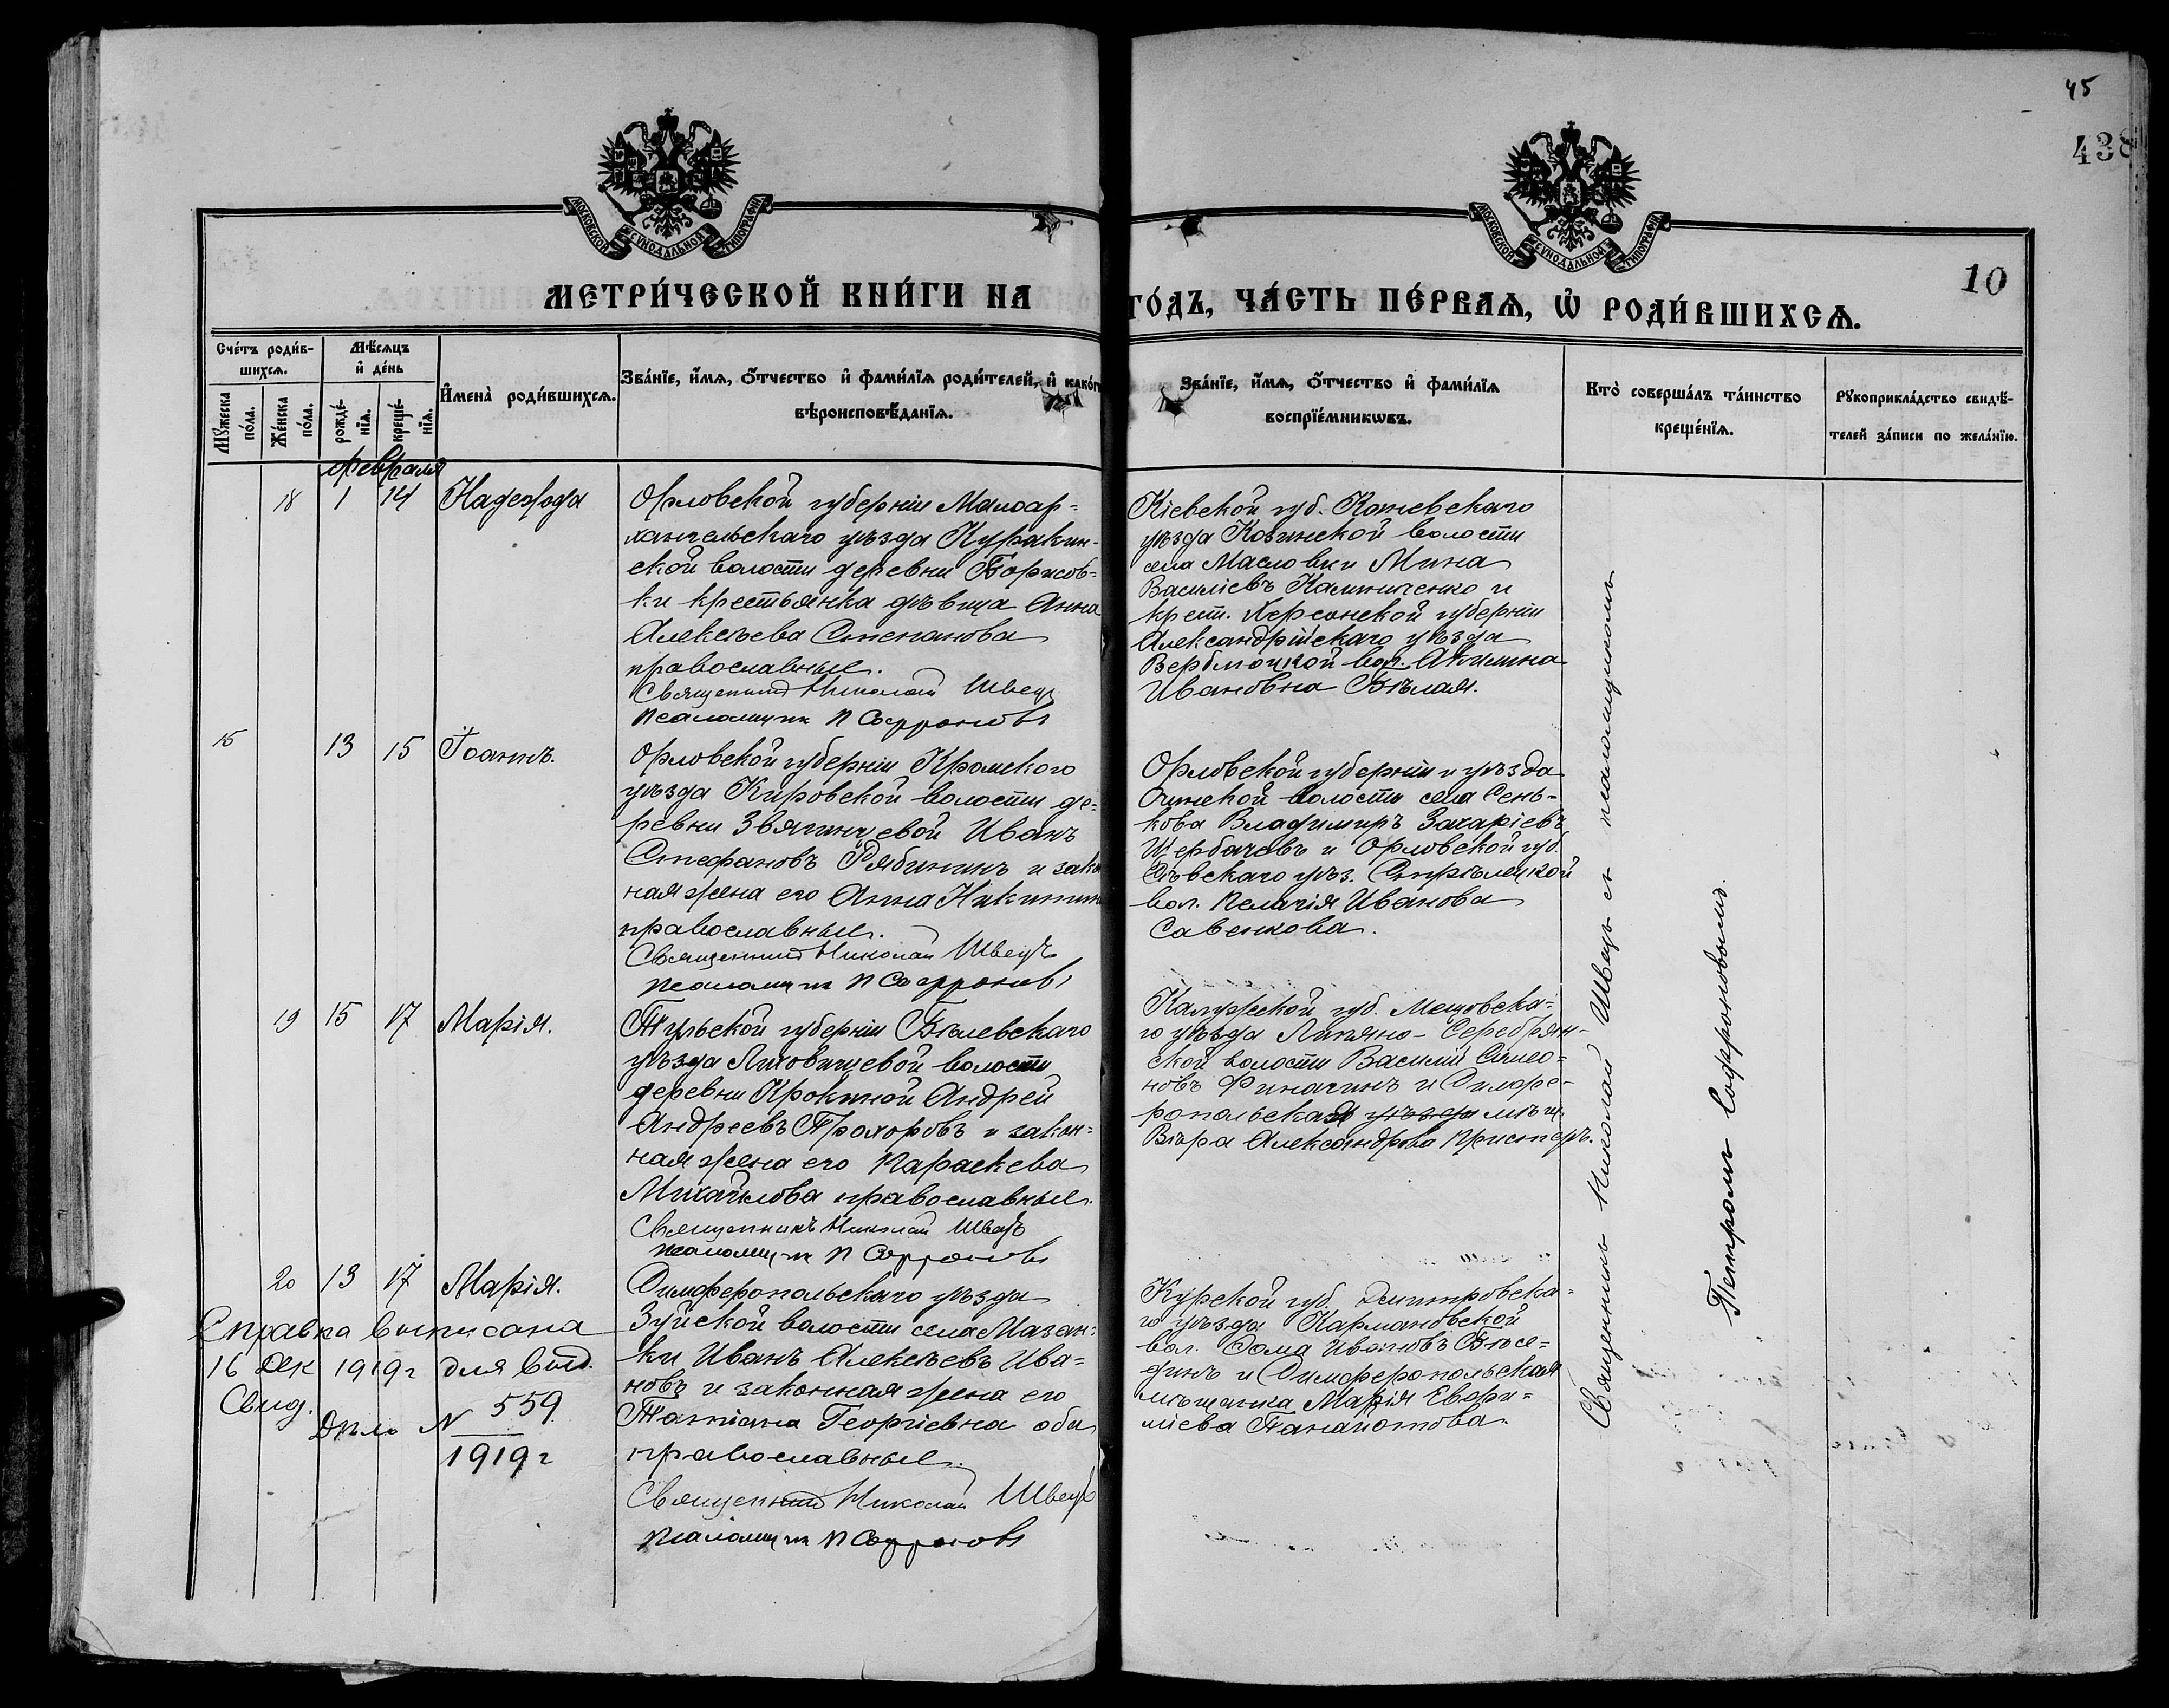 45
438
10
МОСКОВСКОЙ СѴНОДАЛЬНОЙ ТИПОГРАФІИ
МОСКОВСКОЙ СѴНОДАЛЬНОЙ ТИПОГРАФІИ
МЕТРИ́ЧЕСКОЙ КНИ́ГИ НА
ГО́ДЪ, ЧА́СТЬ ПЕ́РВАѦ, Ѡ҆ РОДИ́ВШИХСѦ.
Сче́тъ роди́в-
шихсѧ.
Мѣ́сѧцъ
и҆ де́нь
Мꙋ́жеска
по́ла.
Же́нска
по́ла.
рожде́-
нїѧ.
креще́-
нїѧ.
И҆мена̀ роди́вшихсѧ.
Зва́нїе, и҆́мѧ, ѻ҆́тчество и҆ фами́лїѧ роди́телей, и҆ како́гѡ
вѣроисповѣ́данїѧ.
Зва́нїе, и҆́мѧ, ѻ҆́тчество и҆ фами́лїѧ
воспрїе́мникѡвъ.
Кто̀ соверша́лъ та́инство
креще́нїѧ.
Рꙋкоприкла́дство свидѣ́-
телей за́писи по жела́нїю.
февраля
18 1 14 Надежда
Орловской губерніи Малоар-
хангельскаго уѣзда Куракин-
ской волости деревни Борисов-
ки крестьянка дѣвица Анна
Алексѣева Степанова
православные.
Священникъ Николай Швецъ
псаломщикъ П Софроновъ
Кіевской губ. Каневскаго
уѣзда Козинской волости
села Масловки Мина
Василіевъ Калиниченко и
крест. Херсонской губерніи
Александрійскаго уѣзда
Вербл
вол. Акилина
Ивановна Бѣлая.
15 13 15 Іоаннъ.
Орловской губерніи Кромского
уѣзда Кировской волости де-
ревни Звягинцевой Иванъ
Стефановъ Рябининъ и закон
ная жена его Анна Никитина
православные.
Священникъ Николай Швецъ
псаломщикъ П Софроновъ
Орловской губерніи и уѣзда
волости села Сень-
кова Владимиръ Захаріевъ
Щербачевъ и Орловской губ.
Сѣвскаго уѣз. Стрѣлецкой
вол. Пелагія Иванова
Савенкова.
19 15 17 Марія.
Тульской губерніи Бѣлевскаго
уѣзда волости
деревни Андрей
Андреевъ Прохоровъ и закон-
ная жена его Параскева
Михайлова православные.
Священникъ Николай Швецъ
псаломщикъ П Софроновъ
Калужской губ. Мещовска-
го уѣзда Серебрян-
ской волости Василій Симео-
новъ Финагинъ и Симфе-
ропольская уѣзда мѣщ.
Вѣра Александрова
20 13 17 Марія.
Симферопольскаго уѣзда
Зуйской волости села Мазан-
ки Иванъ Алексѣевъ Ива-
новъ и законная жена его
Татіана Георгіевна оба
православные.
Священникъ Николай Швецъ
псаломщикъ П Софроновъ
Курской губ. Дмитровска-
го уѣзда Кармановской
вол. Фома Ивановъ
и Симферопольская
мѣщанка Марія Евфи-
міева Панайотова.
Справка выписана
16 Дек 1919г для выд.
Свид.
Дѣло N 559
1919г
Священникъ Николай Швецъ съ псаломщикомъ
Петромъ Софроновымъ.